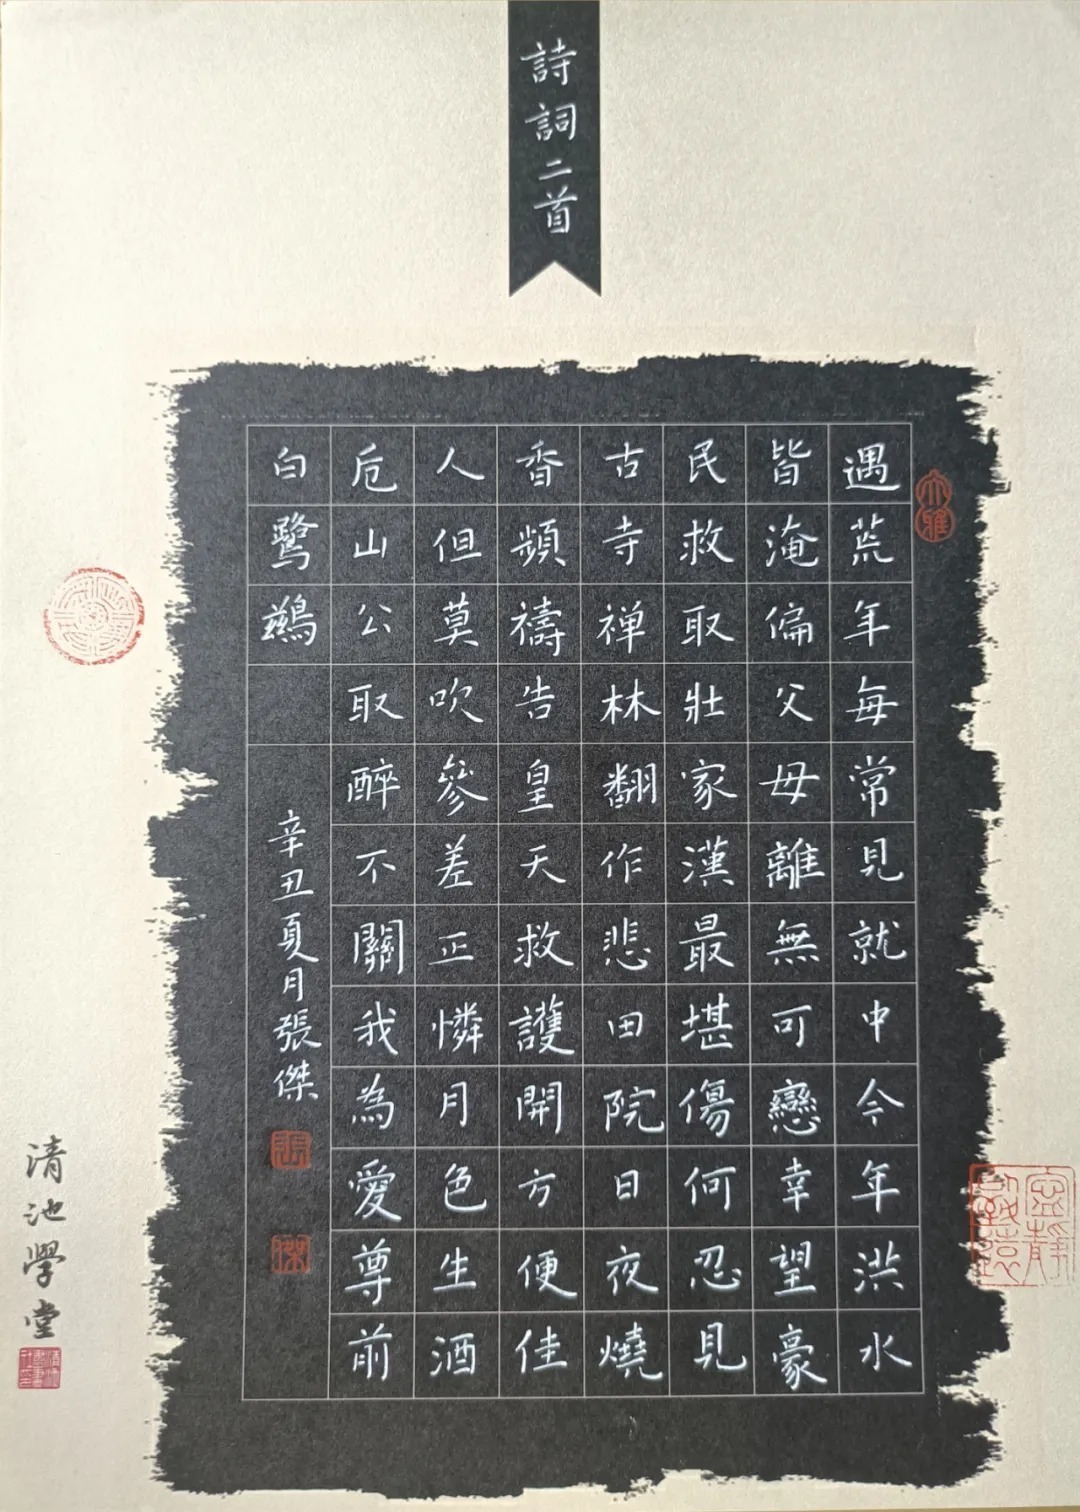 詩詞二首
遇荒年每常見就中今年洪水
皆淹偏父母離無可戀幸望豪
民救取壯家漢最堪傷何忍見
古寺禅林翻作悲田院日夜燒
香頻禱告皇天救護開方便佳
人但莫吹參差正憐月色生酒
卮山公取醉不關我為愛尊前
白鷺鷀
辛丑夏月張傑
張
傑
大雅
寧靜
致遠
清池學堂